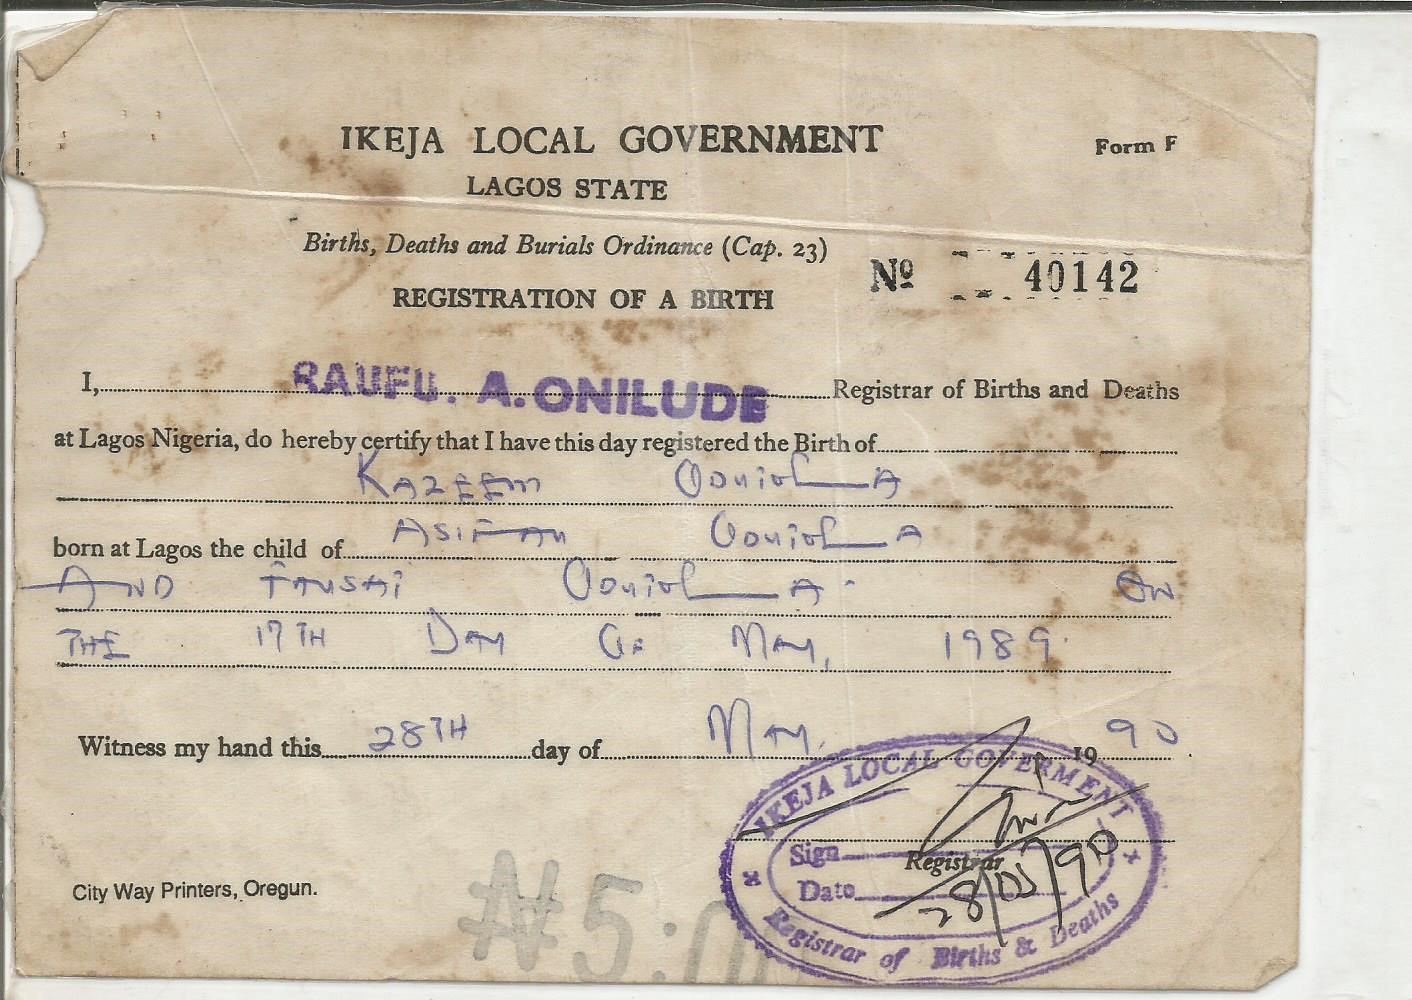 IKEJA LOCAL GOVERNMENT
Form F
LAGOS STATE
Births, Deaths and Burials Ordinance (Cap. 23)
Nº 40142
REGISTRATION OF A BIRTH
I, RAUFU. A. ONILUDE Registrar of Births and Deaths
at Lagos Nigeria, do hereby certify that I have this day registered the Birth of
KAZEEM
born at Lagos the child of
AND ON
THE 17TH DAY OF MAY, 1989.
Witness my hand this 28TH day of MAY, 19 90
IKEJA LOCAL GOVERMENT
Sign
Registrar
Date 28/05/90
Registrar of Births & Deaths
City Way Printers, Oregun.
₦5:0